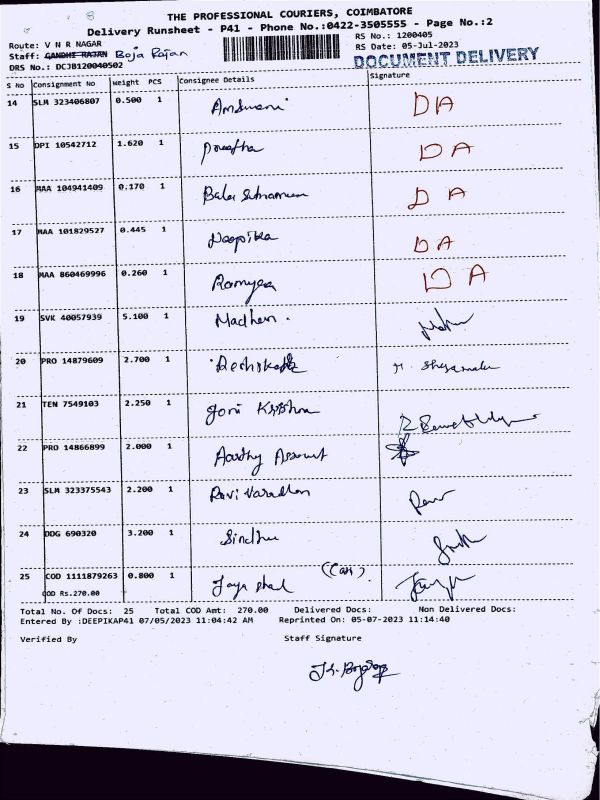 THE PROFESSIONAL COURIERS, COIMBATORE
Delivery Runsheet - P41 - Phone No.:0422-3505555 - Page No.:2
Route: V N R NAGAR
RS No.: 1200405
Staff: GANDHI RAJAN Boja Rajan
RS Date: 05-Jul-2023
DRS No.: DCJB120040502
DOCUMENT DELIVERY
S No Consignment No Weight PCS Consignee Details Signature
14 SLM 323406807 0.500 1 DA
15 DPI 10542712 1.620 1 DA
16 MAA 104941409 0.170 1 DA
17 MAA 101829527 0.445 1 DA
18 MAA 860469996 0.260 1 Ramyaa DA
19 SVK 40057939 5.100 1 Madhan.
20 PRO 14879609 2.700 1
21 TEN 7549103 2.250 1 Krishna
22 PRO 14866899 2.000 1 Aarthy
23 SLM 323375543 2.200 1 Ravi Varadhan
24 DDG 690320 3.200 1 Sindhu
25 COD 1111879263 0.800 1 Jaya
COD Rs.270.00
Total No. Of Docs: 25 Total COD Amt: 270.00 Delivered Docs: Non Delivered Docs:
Entered By :DEEPIKAP41 07/05/2023 11:04:42 AM Reprinted On: 05-07-2023 11:14:40
Verified By Staff Signature